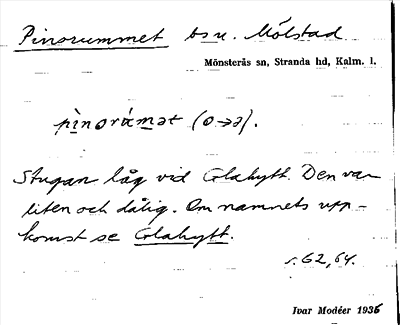 Pinorummet bs u. Mölstad
Mönsterås sn, Stranda hd, Kalm. l.
pìnorámət (o→ə).
Stugan låg vid Glahytt. Den var
liten och dålig. Om namnets upp-
komst se Glahytt.
s. 62, 64.
Ivar Modéer 1936